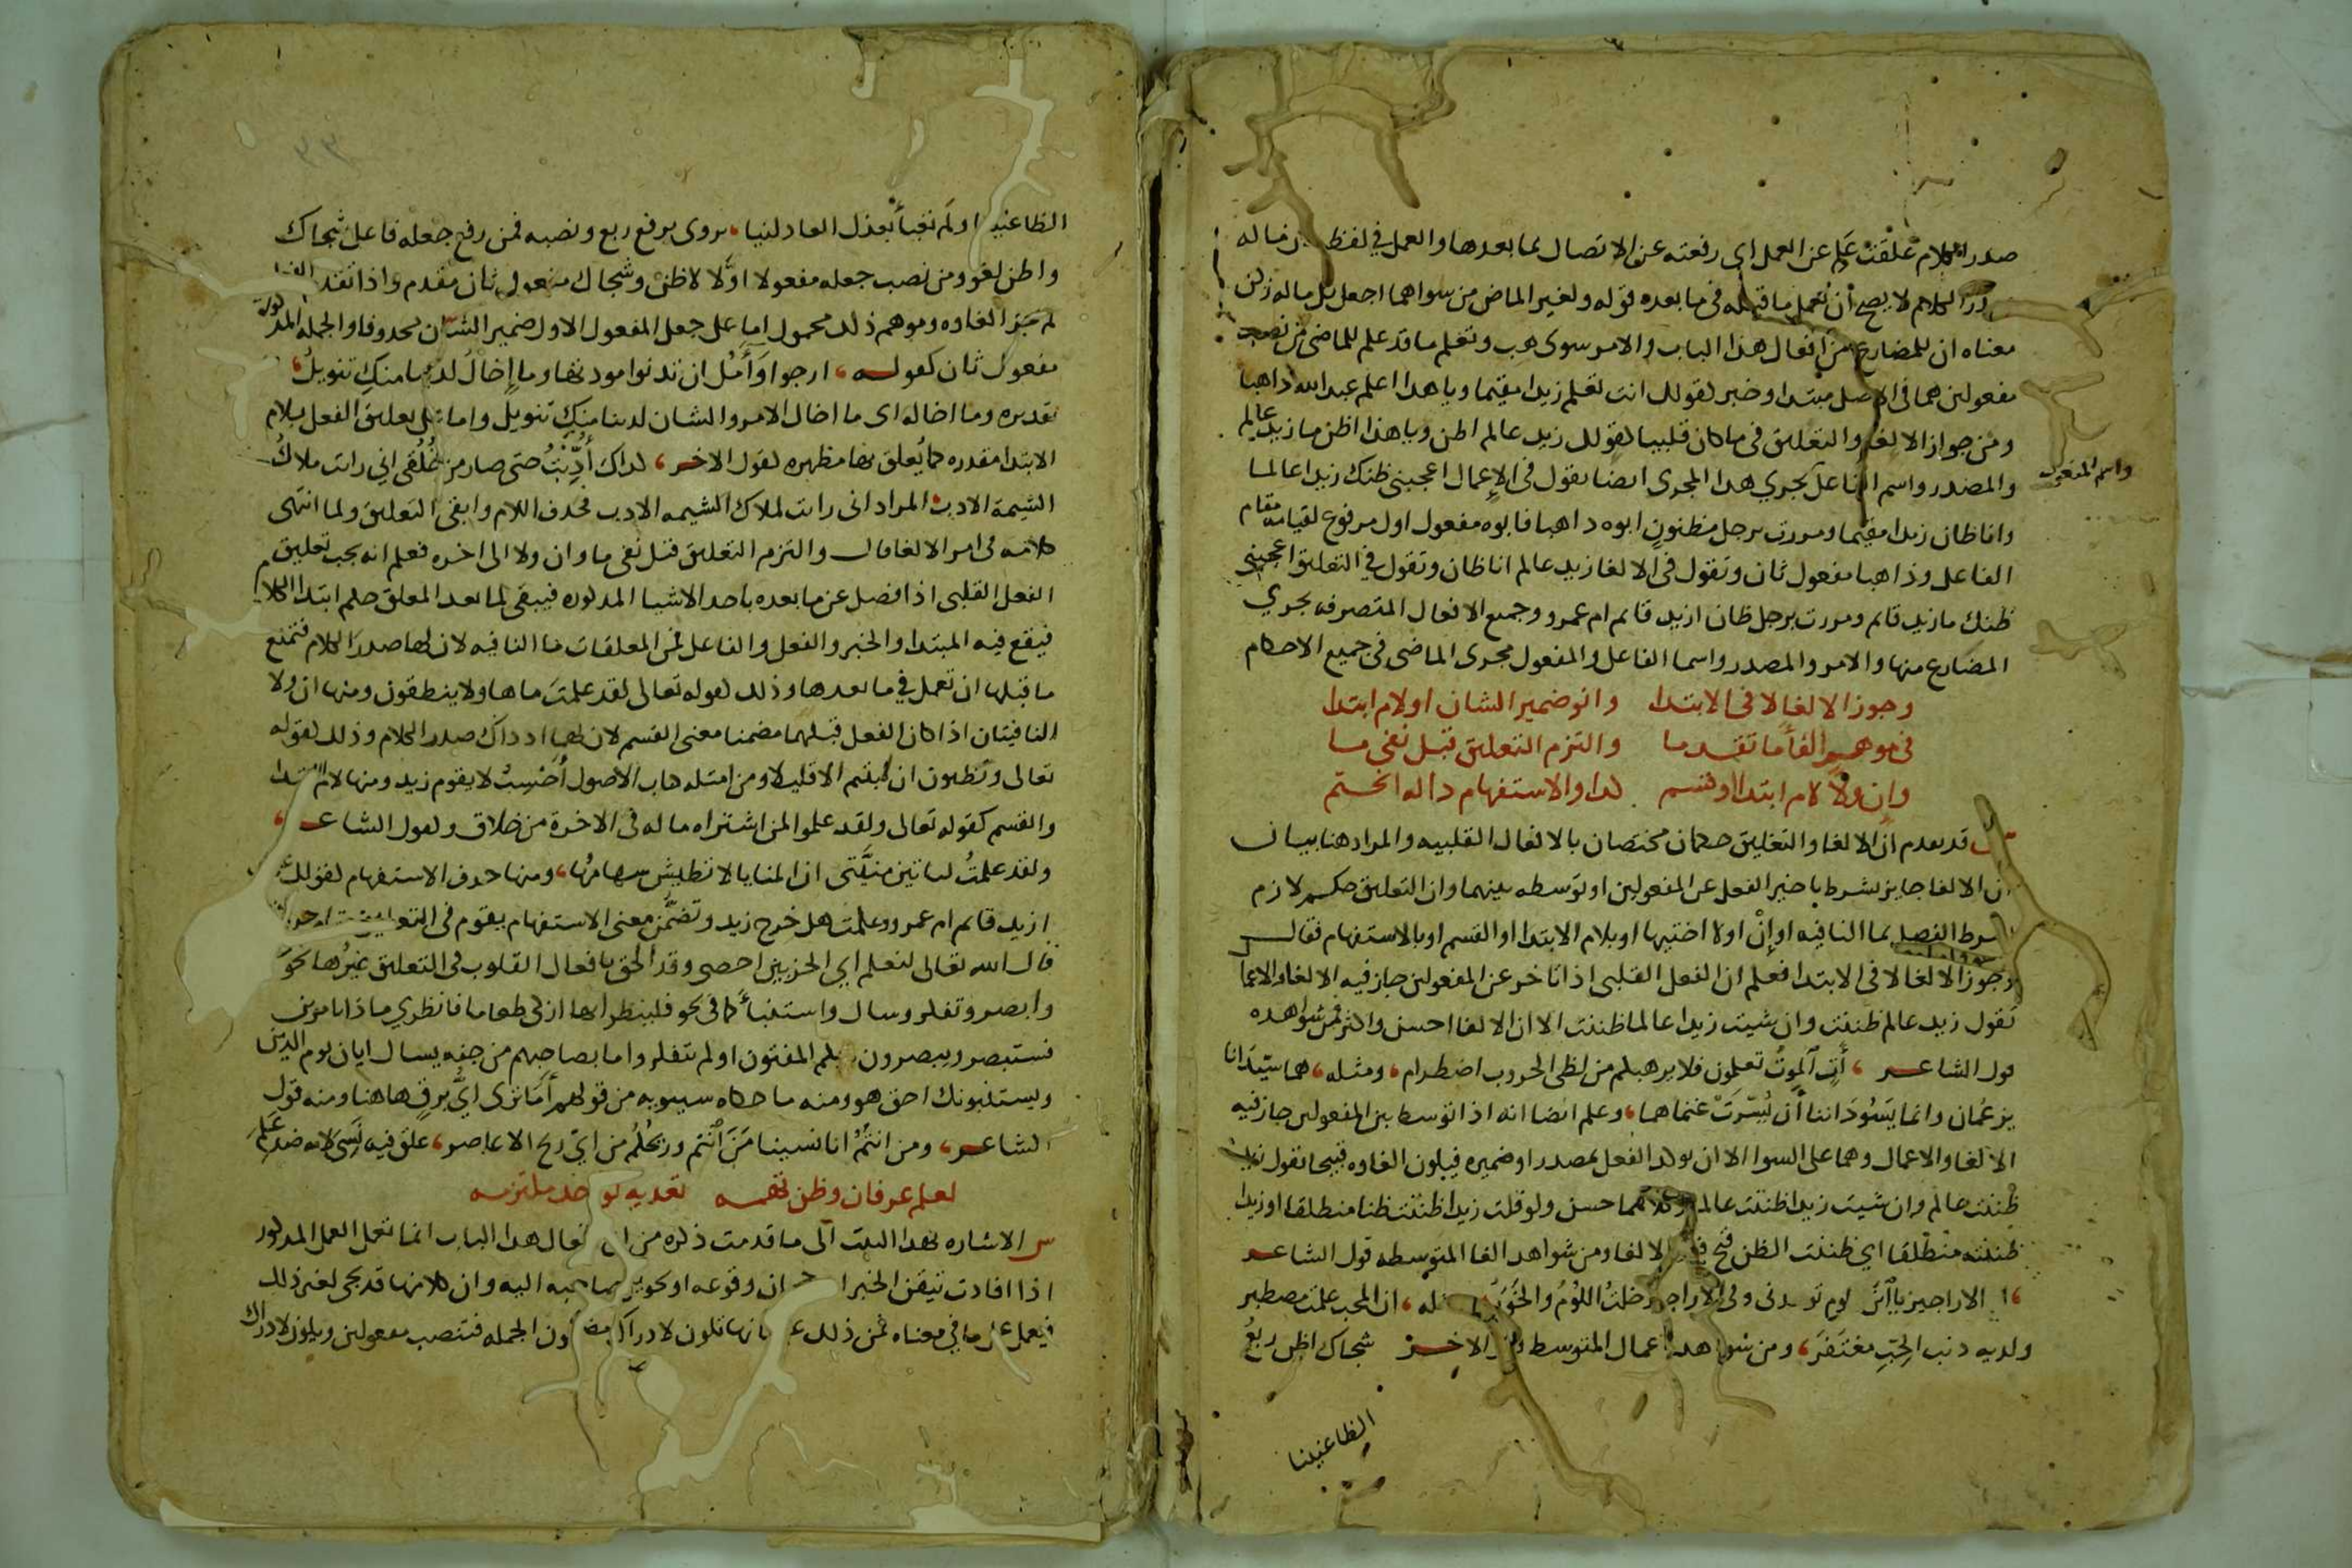 صدر الكلام علقت علم عن العمل اى رفعته عن الاتصال بما بعدها والعمل فى لفظ ماله
صدر الكلام لا يصح ان يعمل ما قبله فى ما بعده قوله ولغير الماض من سواهما اجعل كل ماله زكن
معناه ان للمضارع من افعال هذا الباب والامر سوى هب وتعلم ما قد علم للماضى من نصب
مفعولين هما فى الاصل مبتدا وخبر كقولك انت تعلم زيدا مقيما ويا هذا اعلم عبد الله ذاهبا
ومن جواز الالغا والتعليق فى ما كان قلبيا كقولك زيد عالم اظن ويا هذا اظن ما زيد عالم
والمصدر واسم الفاعل يجري هذا المجرى ايضا تقول فى الاعمال اعجبنى ظنك زيدا عالما
واسم المفعول
وانا ظان زيدا مقيما ومررت برجل مظنون ابوه ذاهبا فابوه مفعول اول مرفوع لقيامه مقام
الفاعل وذاهبا مفعول ثان وتقول فى الالغا زيد عالم انا ظان وتقول فى التعليق اعجبنى
ظنك ما زيد قايم ومررت برجل ظان ازيد قايم ام عمرو وجميع الافعال المتصرفه يجري
المضارع منها والامر والمصدر واسما الفاعل والمفعول مجرى الماضى فى جميع الاحكام
وجوز الالغا لا فى الابتدا وانو ضمير الشان او لام ابتدا
فى موهم الغا ما تقدما والتزم التعليق قبل نفى ما
وان ولا لام ابتدا او قسم كذا والاستفهام ذا له انحتم
قد تقدم ان الالغا والتعليق حكمان مختصان بالافعال القلبيه والمراد هنا بيان
ان الالغا جايز بشرط تاخير الفعل عن المفعولين او توسطه بينهما وان التعليق حكم لازم
بشرط الفصل بما النافيه او ان او لا اختيها او بلام الابتدا او القسم او بالاستفهام فقال
وجوز الالغا لا فى الابتدا فعلم ان الفعل القلبى اذا تاخر عن المفعولين جاز فيه الالغا والاعما
تقول زيد عالم ظننت وان شيت زيدا عالما ظننت الا ان الالغا احسن واكثر فمن شواهده
قول الشاعر آت الموت تعلمون فلا يرهبكم من لظى الحروب اضطرام ومثله هما سيدانا
يزعمان وانما يسوداننا ان يسرت غنماهما وعلم ايضا انه اذا توسط بين المفعولين جاز فيه
الالغا والاعمال وهما على السوا الا ان يوكد الفعل بمصدر او ضميره فيكون الغاوه قبيحا تقول زيد
ظننت عالم وان شيت زيدا ظننت عالما وكلاهما حسن ولو قلت زيدا ظننت ظنا منطلقا او زيدا
ظننته منطلقا اي ظننت الظن قبح فيه الالغا ومن شواهد الغا المتوسطه قول الشاعر
الاراجيز يا ابن لوم توعدنى وفى الاراجيز خلت اللؤم والخور ان المحب علمت مصطبر
ولديه ذنب الحب مغتفر ومن شواهد اعمال المتوسط قول الاخر شجاك اظن ربع
الظاعنينا
الظاعنينا ولم تعبأ بعذل العاذلينا يروى برفع ربع ونصبه فمن رفع جعله فاعل شجاك
واظن لغو ومن نصب جعله مفعولا اولا لاظن وشجاك مفعول ثان مقدم واذا تقدم الفعل
لم يجز الغاوه وموهم ذلك محمول اما على جعل المفعول الاول ضمير الشان محذوفا والجمله المذكورة
مفعول ثان كقوله ارجوا وآمل ان تدنوا مودتها وما إخال لدينا منك تنويل
تقديره وما اخاله اى ما اخال الامر والشان لدينا منك تنويل واما على تعليق الفعل بلام
الابتدا مقدره كما يعلق بها مظهره كقول الاخر كذاك أدبت حتى صار من خلقى اني رايت ملاك
الشيمة الادب المراد انى رايت لملاك الشيمه الادب فحذف اللام وابقى التعليق ولما انتهى
كلامه فى امر الالغا قال والتزم التعليق قبل نفى ما وان ولا الى اخره فعلم انه يجب تعليق
الفعل القلبى اذا فصل عن ما بعده باحد الاشيا المذكوره فيبقى لما بعد المعلق حكم ابتدا الكلام
فيقع فيه المبتدا والخبر والفعل والفاعل فمن المعلقات ما النافيه لان لها صدر الكلام فتمنع
ما قبلها ان تعمل فى ما بعدها وذلك كقوله تعالى لقد علمت ما هاولا ينطقون ومنها ان ولا
النافيتان اذا كان الفعل قبلهما مضمنا معنى القسم لان لهما اذ ذاك صدر الكلام وذلك كقوله
تعالى وتظنون ان لبثتم الا قليلا ومن امثله كتاب الاصول أحسب لا يقوم زيد ومنها لام الابتدا
والقسم كقوله تعالى ولقد علموا لمن اشتراه ما له فى الاخرة من خلاق وكقول الشاعر
ولقد علمت لتاتين منيتى ان المنايا لا تطيش سهامها ومنها حرف الاستفهام كقولك
ازيد قايم ام عمرو وعلمت هل خرج زيد وتضمن معنى الاستفهام يقوم فى التعليق
قال الله تعالى لنعلم اي الحزبين احصى وقد الحق بافعال القلوب فى التعليق غيرها نحو
وابصر وتفكر وسال واستنبأ كما فى نحو فلينظر ايها ازكى طعاما فانظري ماذا تامرين
فستبصر ويبصرون بايكم المفتون اولم يتفكروا ما بصاحبهم من جنه يسال ايان يوم الدين
ويستنبونك احق هو ومنه ما حكاه سيبويه من قولهم أما ترى أي برق هاهنا ومنه قول
الشاعر ومن انتم انا نسينا من انتم وريحكم من اي ريح الاعاصر علق فيه نسى لانه ضد علم
لعلم عرفان وظن تهمه تعديه لواحد ملتزمه
س الاشاره بهذا البيت الى ما قدمت ذكره من ان افعال هذا الباب انما تعمل العمل المذكور
اذا افادت تيقن الخبر ان وقوعه او تحويل صاحبه اليه وان كلا منها قد يجى لغير ذلك
فيعمل عمل ما فى معناه فمن ذلك علم فانها تكون لادراك مضمون الجمله فتنصب مفعولين ويكون لادراك